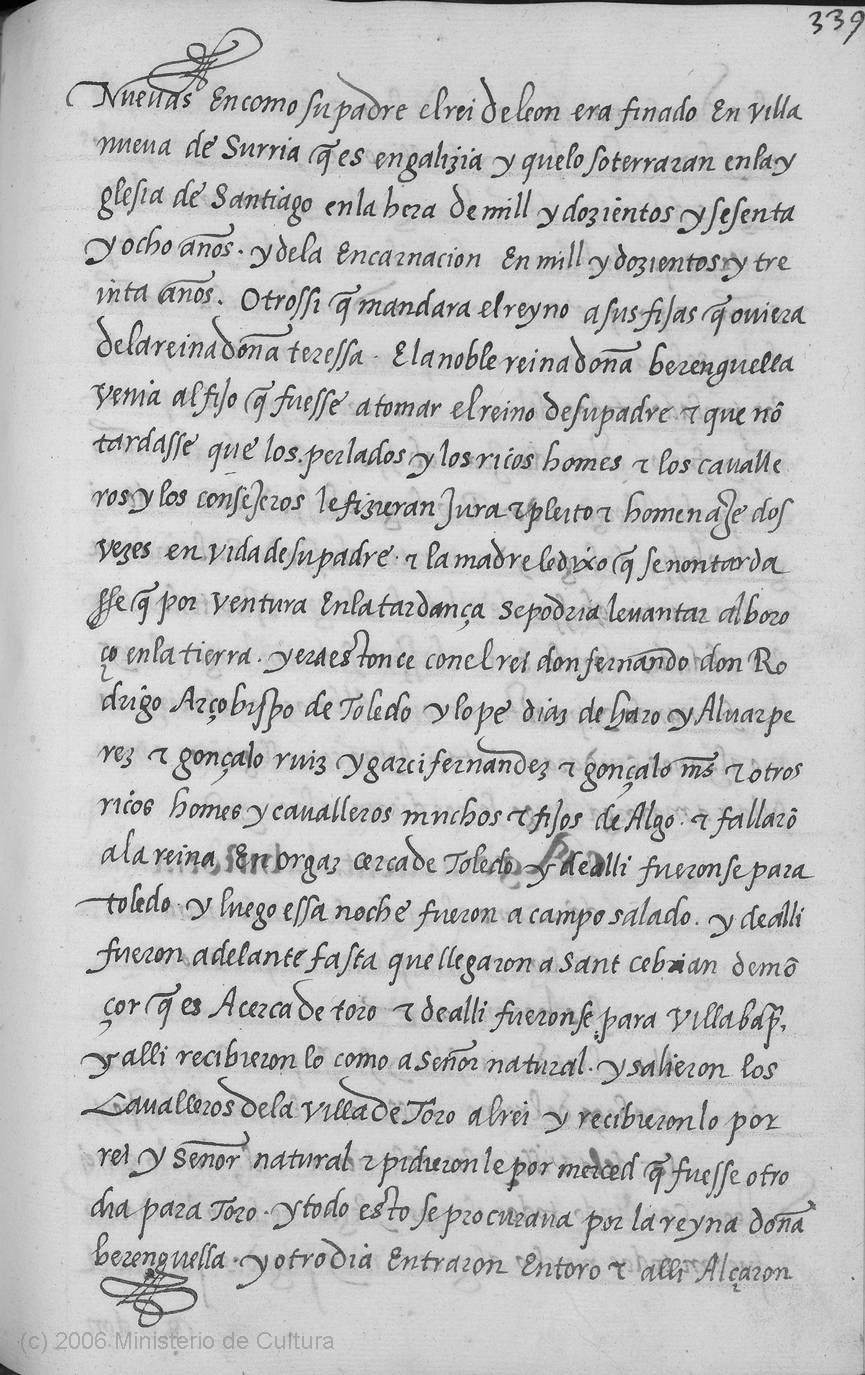 339
Nuevas En como su padre el rei de leon era finado En villa
nueva de Surria q̃ es en galizia y que lo soterraran en la y
glesia de Santiago en la hera de mill y dozientos y sesenta
y ocho años. y de la Encarnacion En mill y dozientos y tre
inta años. Otrossi q̃ mandara el reyno a sus fijas q̃ oviera
de la reina doña teressa. E la noble reina doña berenguella
venia al fijo q̃ fuesse a tomar el reino de su padre & que nõ
tardasse que los perlados y los ricos homes & los cavalle
ros y los consejeros le fizieran Jura & pleito & homenaje dos
vezes en vida de su padre. & la madre le dixo q̃ se non tarda
sse q̃ por ventura En la tardança se podria levantar alboro
ço en la tierra. y era estonce con el rei don fernando don Ro
drigo Arçobispo de Toledo y lope diaz de haro y Alvar pe
rez & gonçalo ruiz y garci fernandez & gonçalo m̃s & otros
ricos homes y cavalleros muchos & fijos de Algo. & fallarõ
a la reina En orgaz cerca de Toledo y de alli fueronse para
toledo. y luego essa noche fueron a campo salado. y de alli
fueron adelante fasta que llegaron a Sant cebrian de mõ
çor q̃ es Acerca de toro & de alli fueronse para Villa
y alli recibieron lo como a Señor natural. y salieron los
Cavalleros de la villa de Toro al rei y recibieron lo por
rei y Señor natural & pidieron le por merced q̃ fuesse otro
dia para Toro. y todo esto se procurava por la reyna doña
berenguella. y otro dia Entraron En toro & alli Alçaron
(c) 2006 Ministerio de Cultura